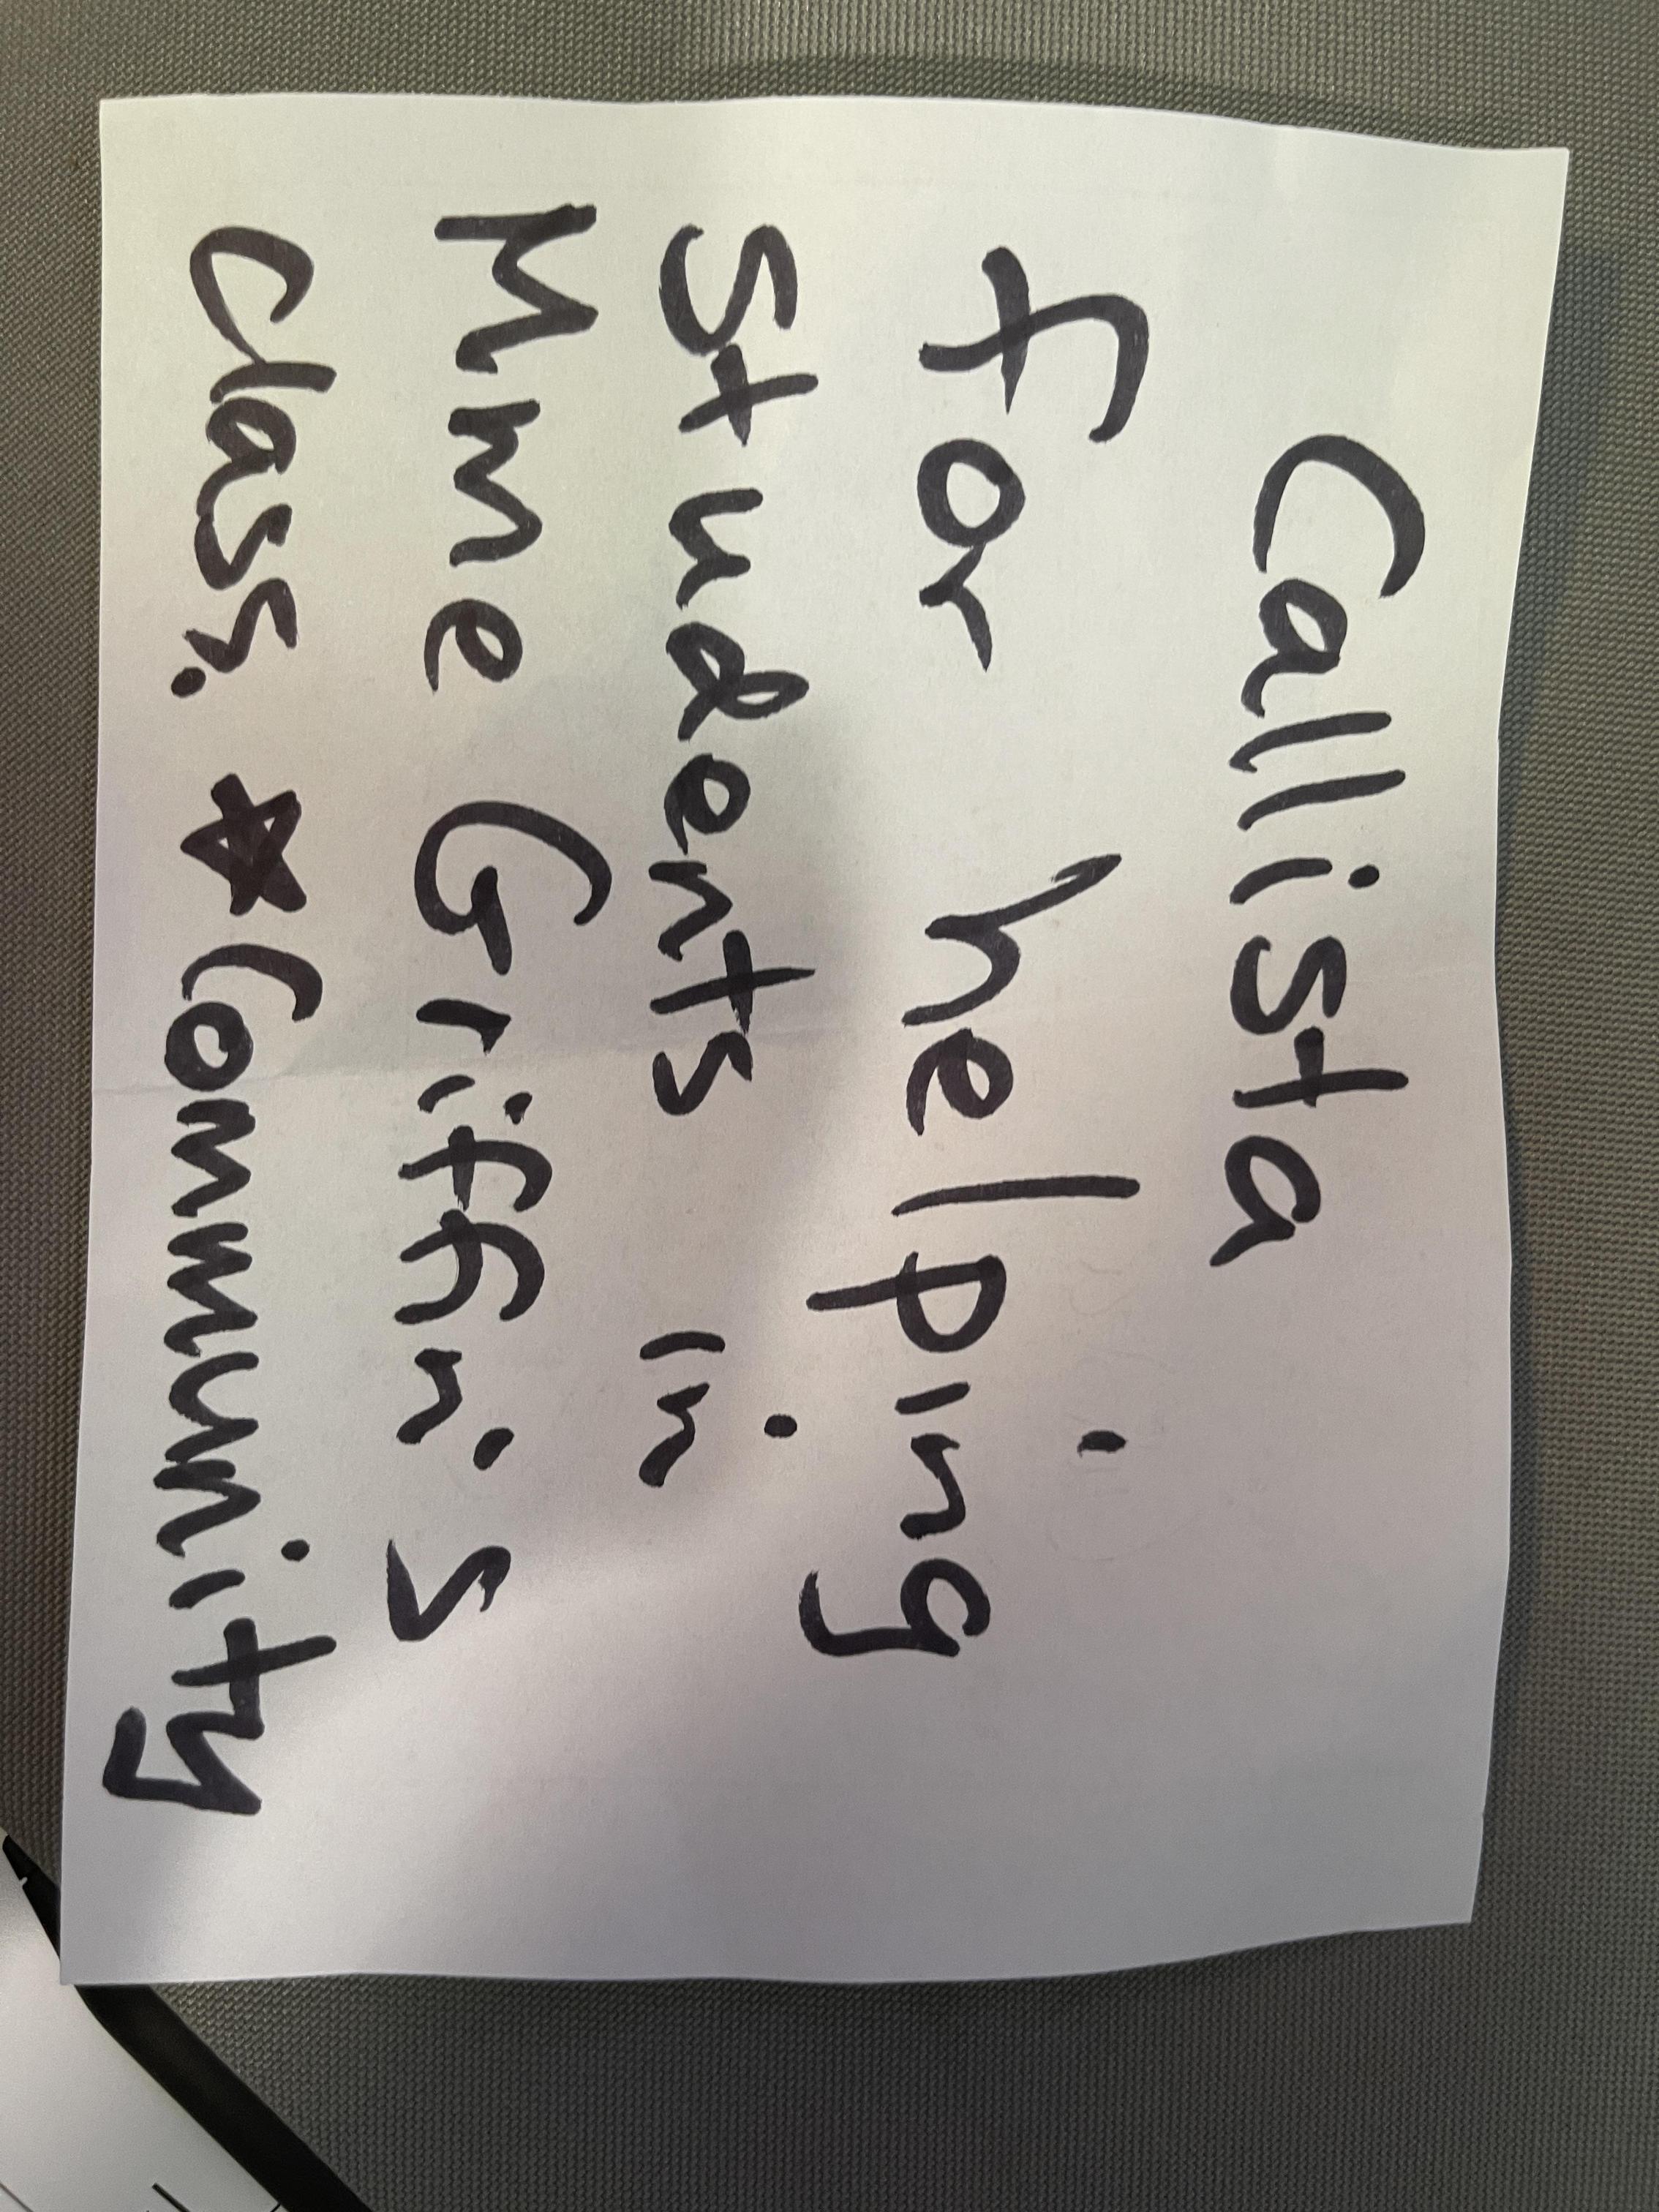 Callista
for helping
students in
Mme Griffin's
class. ☆Community